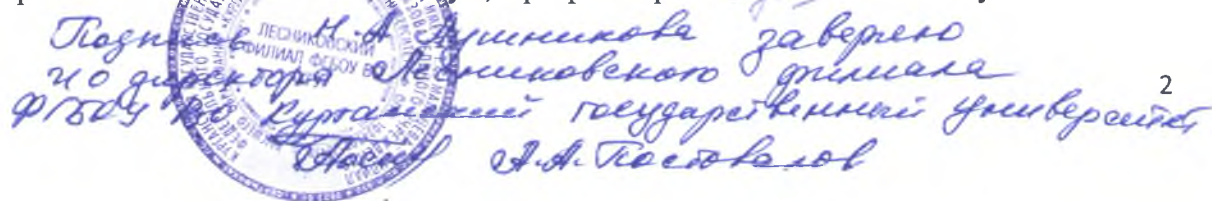 Подпись Н.А. Лушникова заверено
ИО директора Лесниковского филиала
ФГБОУ ВО Курганский государственный университет
А.А. Постовалов
2
ЛЕСНИКОВСКИЙ
ФИЛИАЛ ФГБОУ ВО